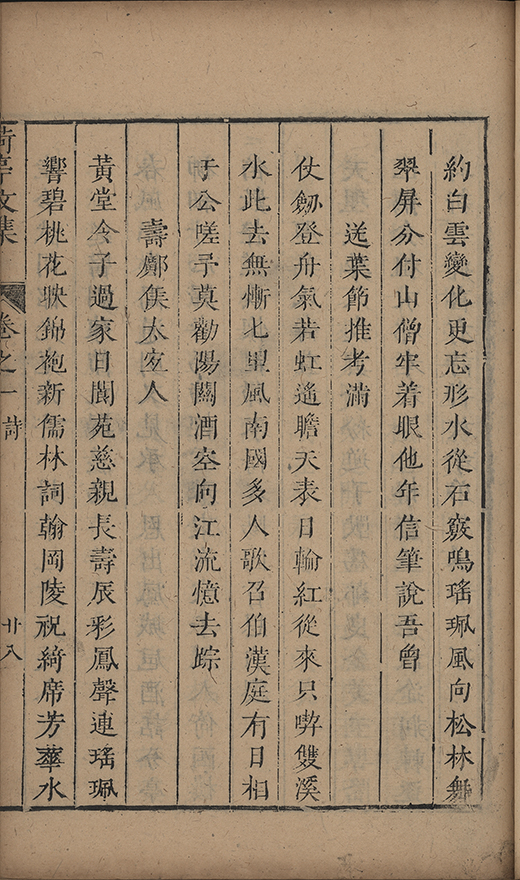 約白雲變化更忘形水從石竅鳴瑤珮風向松林舞
翠屏分付山僧牢着眼他年信筆說吾曾
送葉節推考滿
仗劒登舟氣若虹遙瞻天表日輪紅從來只喫雙溪
水此去無慚七里風南國多人歌召伯漢庭有日相
于公嗟予莫勸陽關酒空向江流憶去踪
壽鄺侯太安人
黃堂令子過家日閬苑慈親長壽辰彩鳳聲連瑤珮
響碧桃花映錦袍新儒林詞翰岡陵祝綺席芳華水
文集 卷之一 詩 廿八